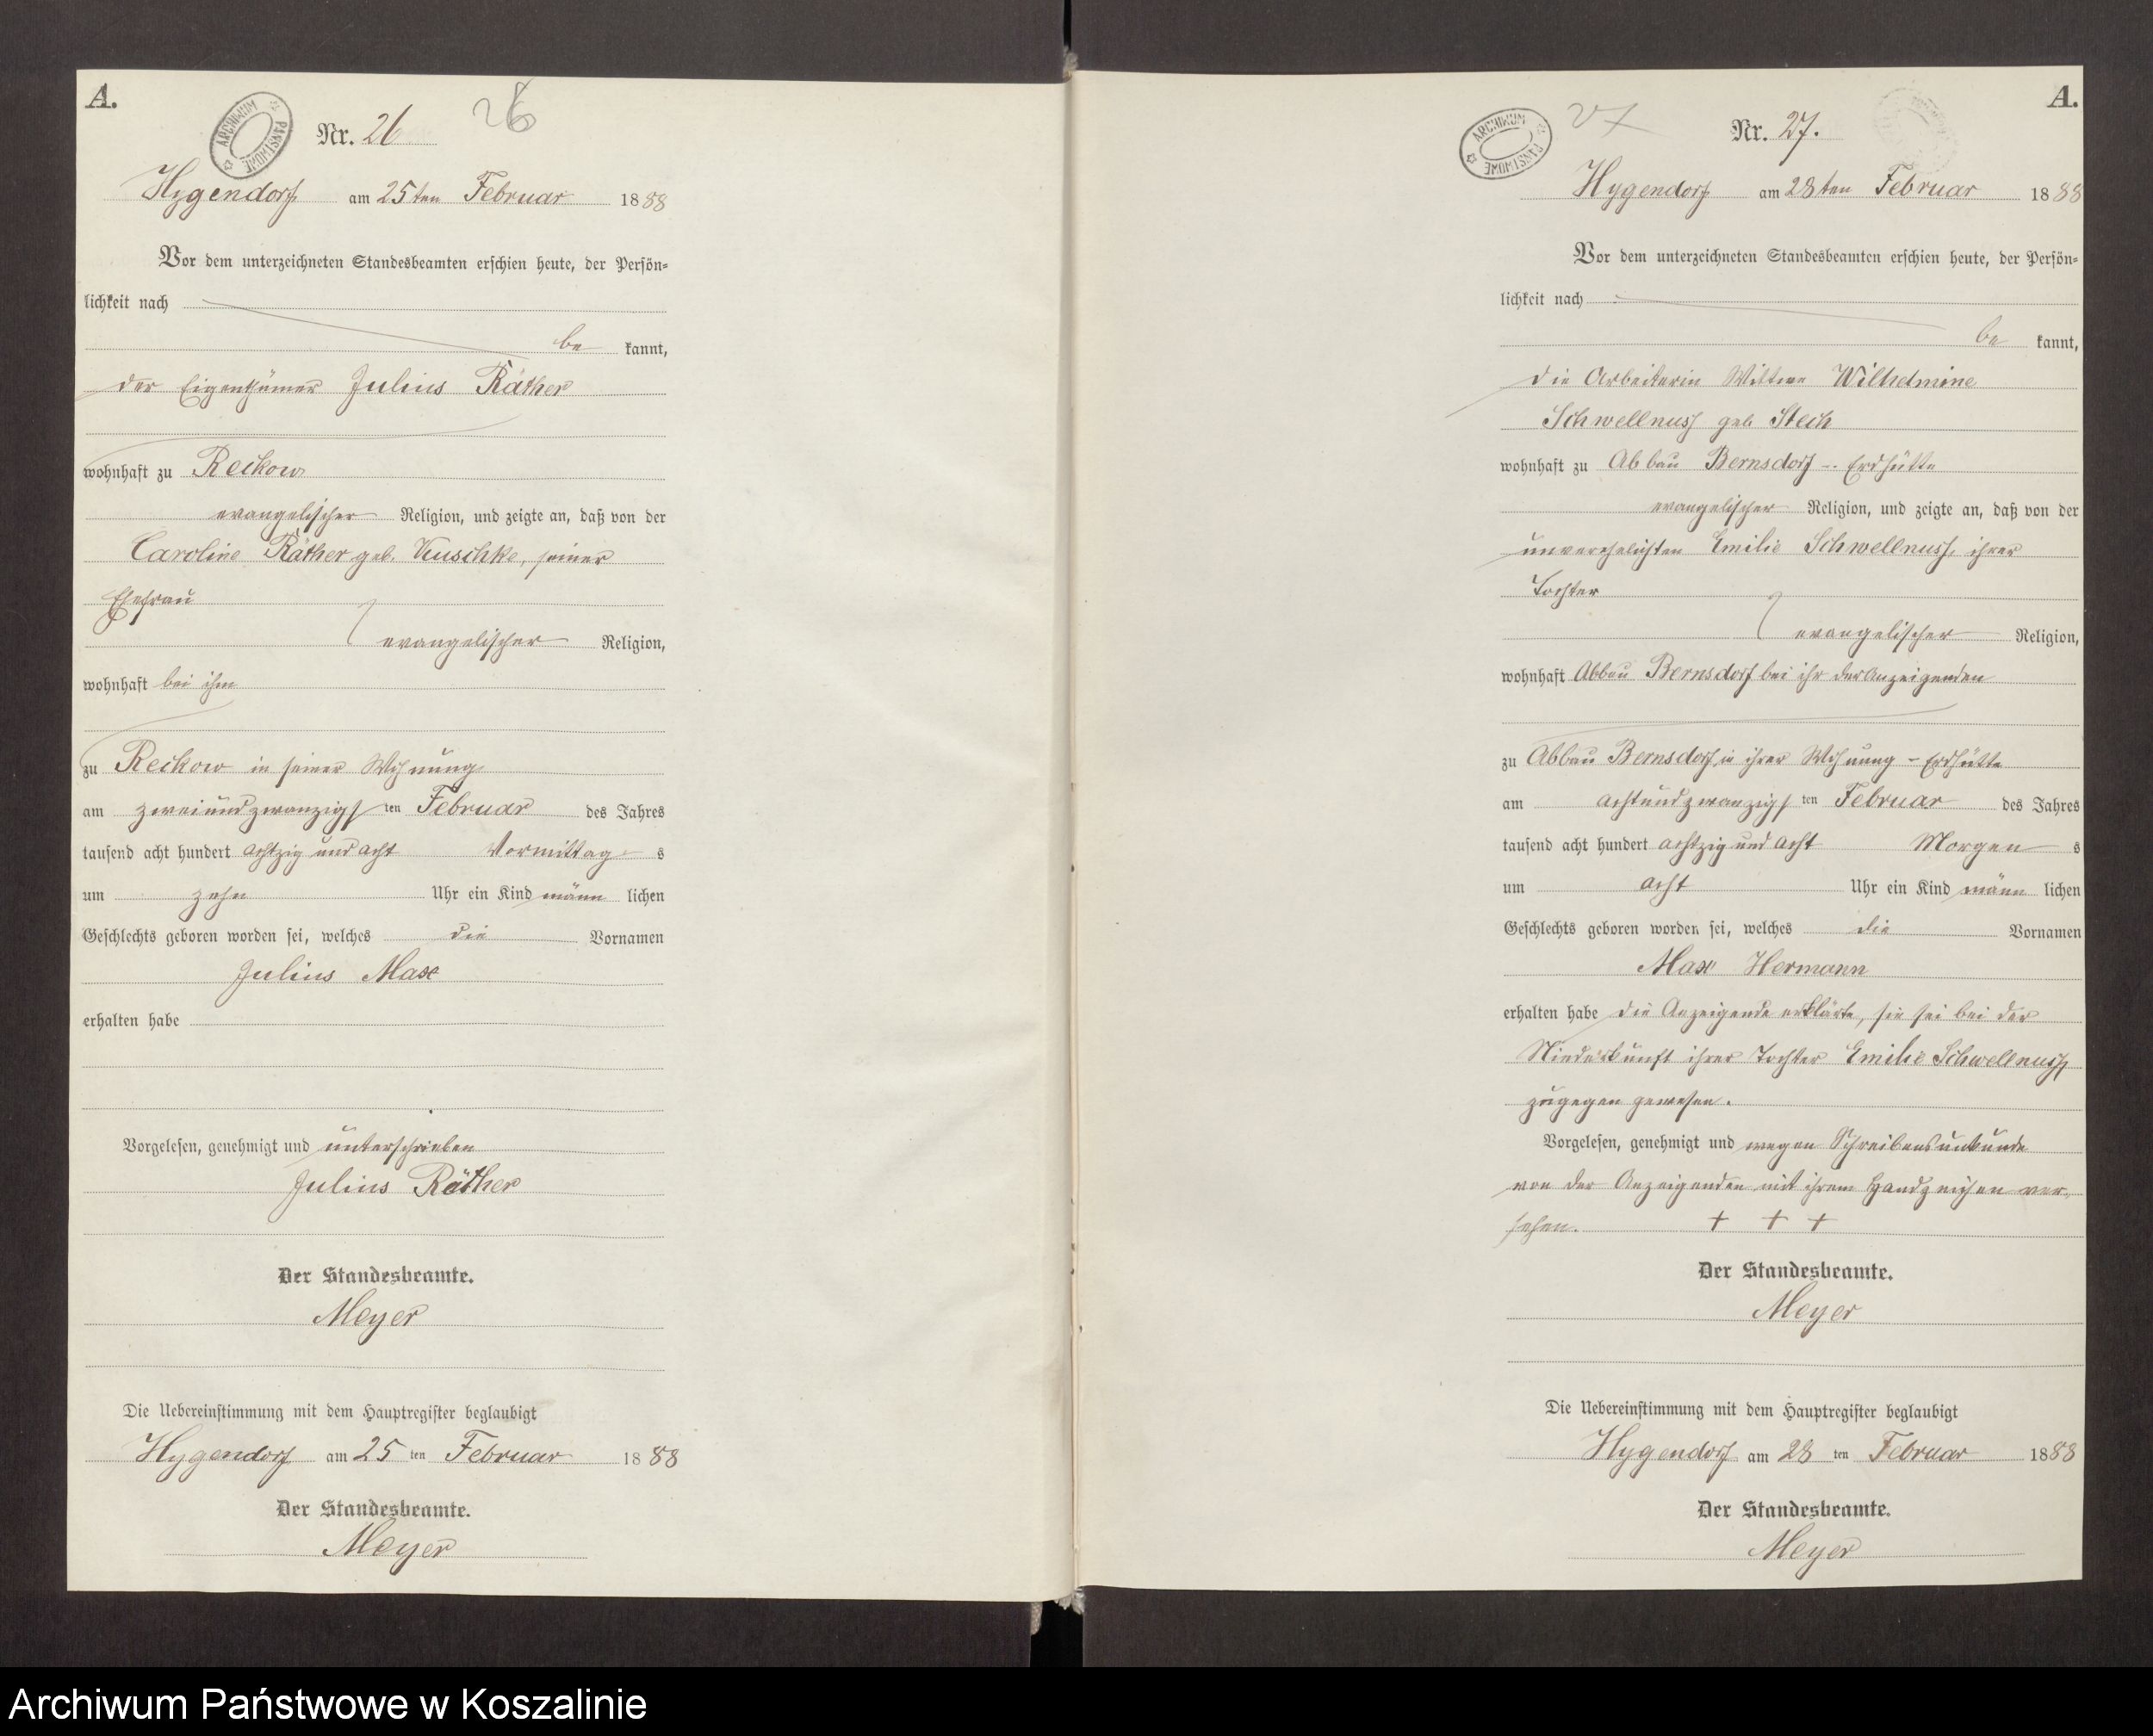 A.
ARCHIWUM PAŃSTWOWE
Nr. 26
26
Hygendorf am 25ten Februar 1888
Vor dem unterzeichneten Standesbeamten erschien heute, der Persön=
lichkeit nach
be kannt,
der Eigenthümer Julius Räther
wohnhaft zu Reckow
evangelischer Religion, und zeigte an, daß von der
Caroline Räther geb. Kuschke, seiner
Ehefrau
evangelischer Religion,
wohnhaft bei ihm
zu Reckow in seiner Wohnung
am zweiundzwanzigsten Februar des Jahres
tausend acht hundert achtzig und acht Vormittags
um zehn Uhr ein Kind männlichen
Geschlechts geboren worden sei, welches die Vornamen
Julius Max
erhalten habe
Vorgelesen, genehmigt und unterschrieben
Julius Räther
Der Standesbeamte.
Meyer
Die Uebereinstimmung mit dem Hauptregister beglaubigt
Hygendorf am 25 ten Februar 1888
Der Standesbeamte.
Meyer
A.
ARCHIWUM PAŃSTWOWE
27
Nr. 27.
Hygendorf am 28ten Februar 1888
Vor dem unterzeichneten Standesbeamten erschien heute, der Persön=
lichkeit nach
be kannt,
die Arbeiterin Wittwe Wilhelmine
Schwellnuss geb Stech
wohnhaft zu Abbau Bernsdorf - Erdhütte
evangelischer Religion, und zeigte an, daß von der
unverehelichten Emilie Schwellnuss, ihrer
Tochter
evangelischer Religion,
wohnhaft Abbau Bernsdorf bei ihr der Anzeigenden
zu Abbau Bernsdorf in ihrer Wohnung - Erdhütte
am achtundzwanzigsten Februar des Jahres
tausend acht hundert achtzig und acht Morgens
um acht Uhr ein Kind männlichen
Geschlechts geboren worden sei, welches die Vornamen
Max Hermann
erhalten habe die Anzeigende erklärte, sie sei bei der
Niederkunft ihrer Tochter Emilie Schwellnuss
zugegen gewesen.
Vorgelesen, genehmigt und wegen Schreibensunkunde
von der Anzeigenden mit ihrem Handzeichen ver-
sehen. + + +
Der Standesbeamte.
Meyer
Die Uebereinstimmung mit dem Hauptregister beglaubigt
Hygendorf am 28 ten Februar 1888
Der Standesbeamte.
Meyer
Archiwum Państwowe w Koszalinie